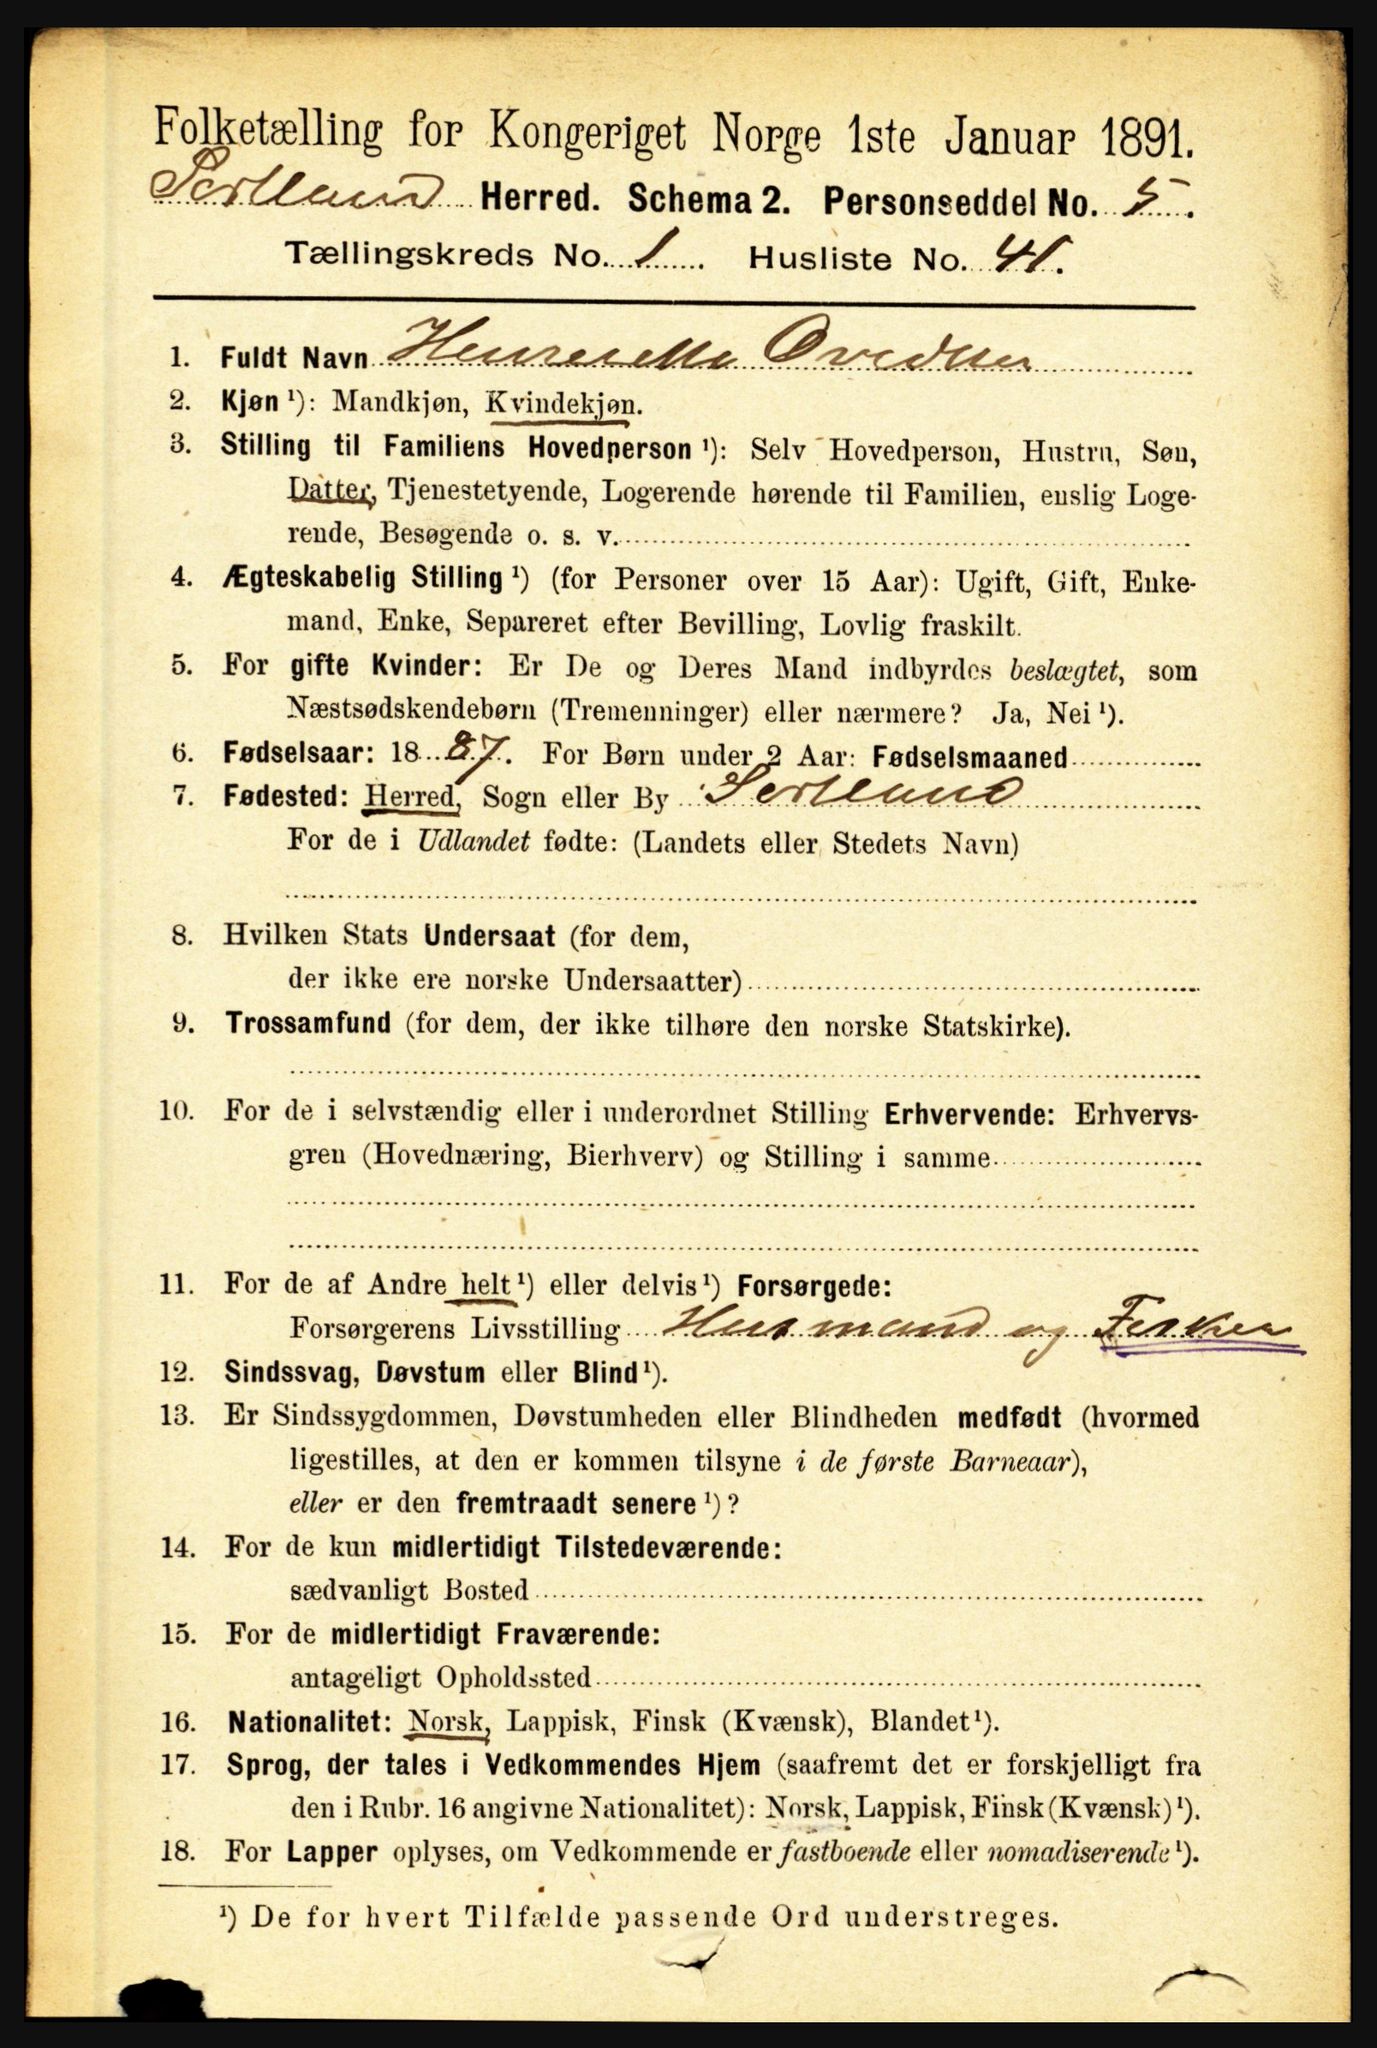 Folketælling for Kongeriget Norge 1ste Januar 1891.
Sortland Herred. Schema 2. Personseddel No. 5.
Tællingskreds No. 1 Husliste No. 41.
1. Fuldt Navn Henriette
2. Kjøn ¹): Mandkjøn, Kvindekjøn.
3. Stilling til Familiens Hovedperson ¹): Selv Hovedperson, Hustru, Søn,
Datter, Tjenestetyende, Logerende hørende til Familien, enslig Loge-
rende, Besøgende o. s. v.
4. Ægteskabelig Stilling ¹) (for Personer over 15 Aar): Ugift, Gift, Enke-
mand, Enke, Separeret efter Bevilling, Lovlig fraskilt.
5. For gifte Kvinder: Er De og Deres Mand indbyrdes beslægtet, som
Næstsødskendebørn (Tremenninger) eller nærmere? Ja, Nei ¹).
6. Fødselsaar: 1887. For Børn under 2 Aar: Fødselsmaaned
7. Fødested: Herred, Sogn eller By Sortland
For de i Udlandet fødte: (Landets eller Stedets Navn)
8. Hvilken Stats Undersaat (for dem,
der ikke ere norske Undersaatter)
9. Trossamfund (for dem, der ikke tilhøre den norske Statskirke).
10. For de i selvstændig eller i underordnet Stilling Erhvervende: Erhvervs-
gren (Hovednæring, Bierhverv) og Stilling i samme
11. For de af Andre helt ¹) eller delvis ¹) Forsørgede:
Forsørgerens Livsstilling Husmand og Fisker
12. Sindssvag, Døvstum eller Blind ¹).
13. Er Sindssygdommen, Døvstumheden eller Blindheden medfødt (hvormed
ligestilles, at den er kommen tilsyne i de første Barneaar),
eller er den fremtraadt senere ¹)?
14. For de kun midlertidigt Tilstedeværende:
sædvanligt Bosted
15. For de midlertidigt Fraværende:
antageligt Opholdssted
16. Nationalitet: Norsk, Lappisk, Finsk (Kvænsk), Blandet ¹).
17. Sprog, der tales i Vedkommendes Hjem (saafremt det er forskjelligt fra
den i Rubr. 16 angivne Nationalitet): Norsk, Lappisk, Finsk (Kvænsk) ¹).
18. For Lapper oplyses, om Vedkommende er fastboende eller nomadiserende ¹).
¹) De for hvert Tilfælde passende Ord understreges.